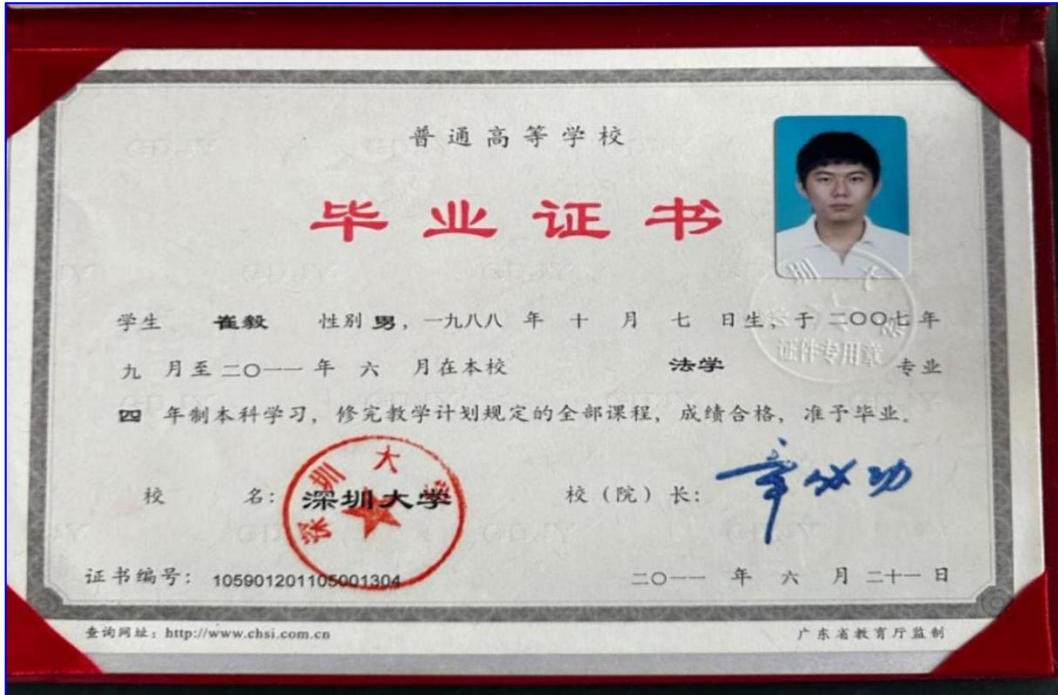 普通高等学校
毕业证书
学生 崔毅 性别 男，一九八八 年 十 月 七 日生，于 二〇〇七 年
九 月至 二〇一一 年 六 月在本校 法学 专业
四 年制本科学习，修完教学计划规定的全部课程，成绩合格，准予毕业。
校 名：深圳大学 校（院）长：章必功
深圳大学
证件专用章
证书编号：105901201105001304 二〇一一 年 六 月 二十一 日
查询网址：http://www.chsi.com.cn 广东省教育厅监制